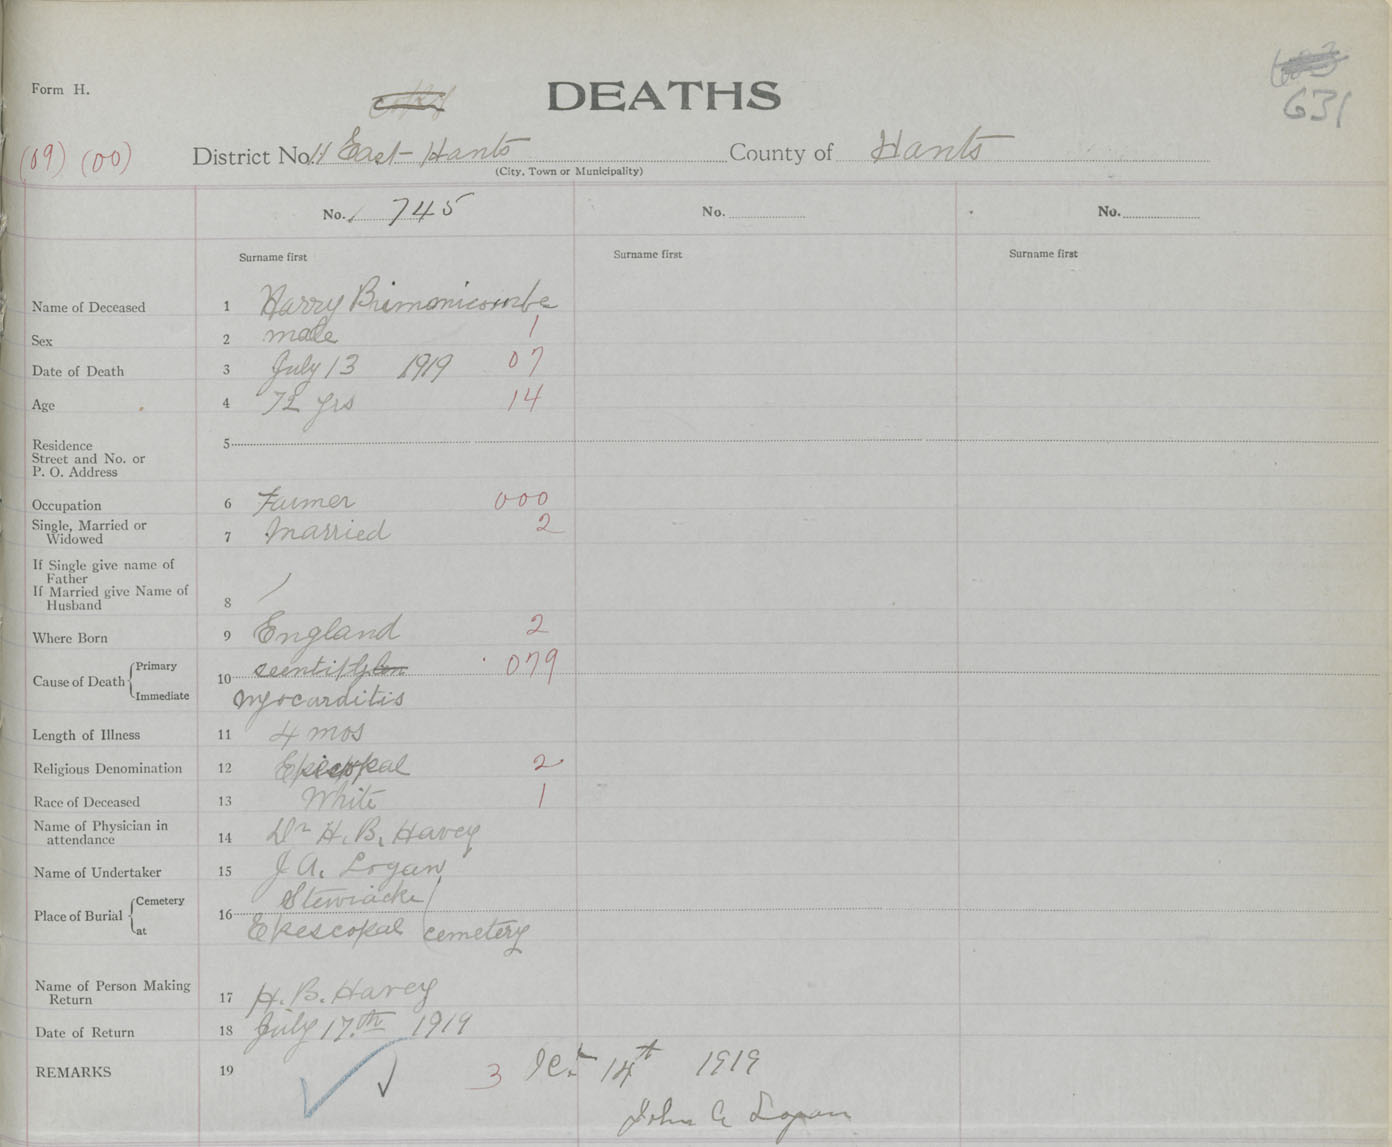 631
Form H.
DEATHS
(09) (00)
District No. 11 East Hants County of Hants
(City, Town or Municipality)
No. 745 No. No.
Surname first Surname first Surname first
Name of Deceased 1 Harry Brimmicombe
Sex 2 male 1
Date of Death 3 July 13 1919 07
Age 4 72 yrs 14
Residence 5
Street and No. or
P. O. Address
Occupation 6 Farmer 000
Single, Married or
Widowed 7 Married 2
If Single give name of
Father
If Married give Name of
Husband 8
Where Born 9 England 2
Cause of Death Primary 10 079
Immediate myocarditis
Length of Illness 11 4 mos
Religious Denomination 12 Episcopal 2
Race of Deceased 13 White 1
Name of Physician in
attendance 14 Dr H. B. Havey
Name of Undertaker 15 J A. Logan
Place of Burial Cemetery 16 Stewiacke
at Episcopal cemetery
Name of Person Making
Return 17 H. B. Havey
Date of Return 18 July 17th 1919
REMARKS 19 3 14th 1919
John A Logan